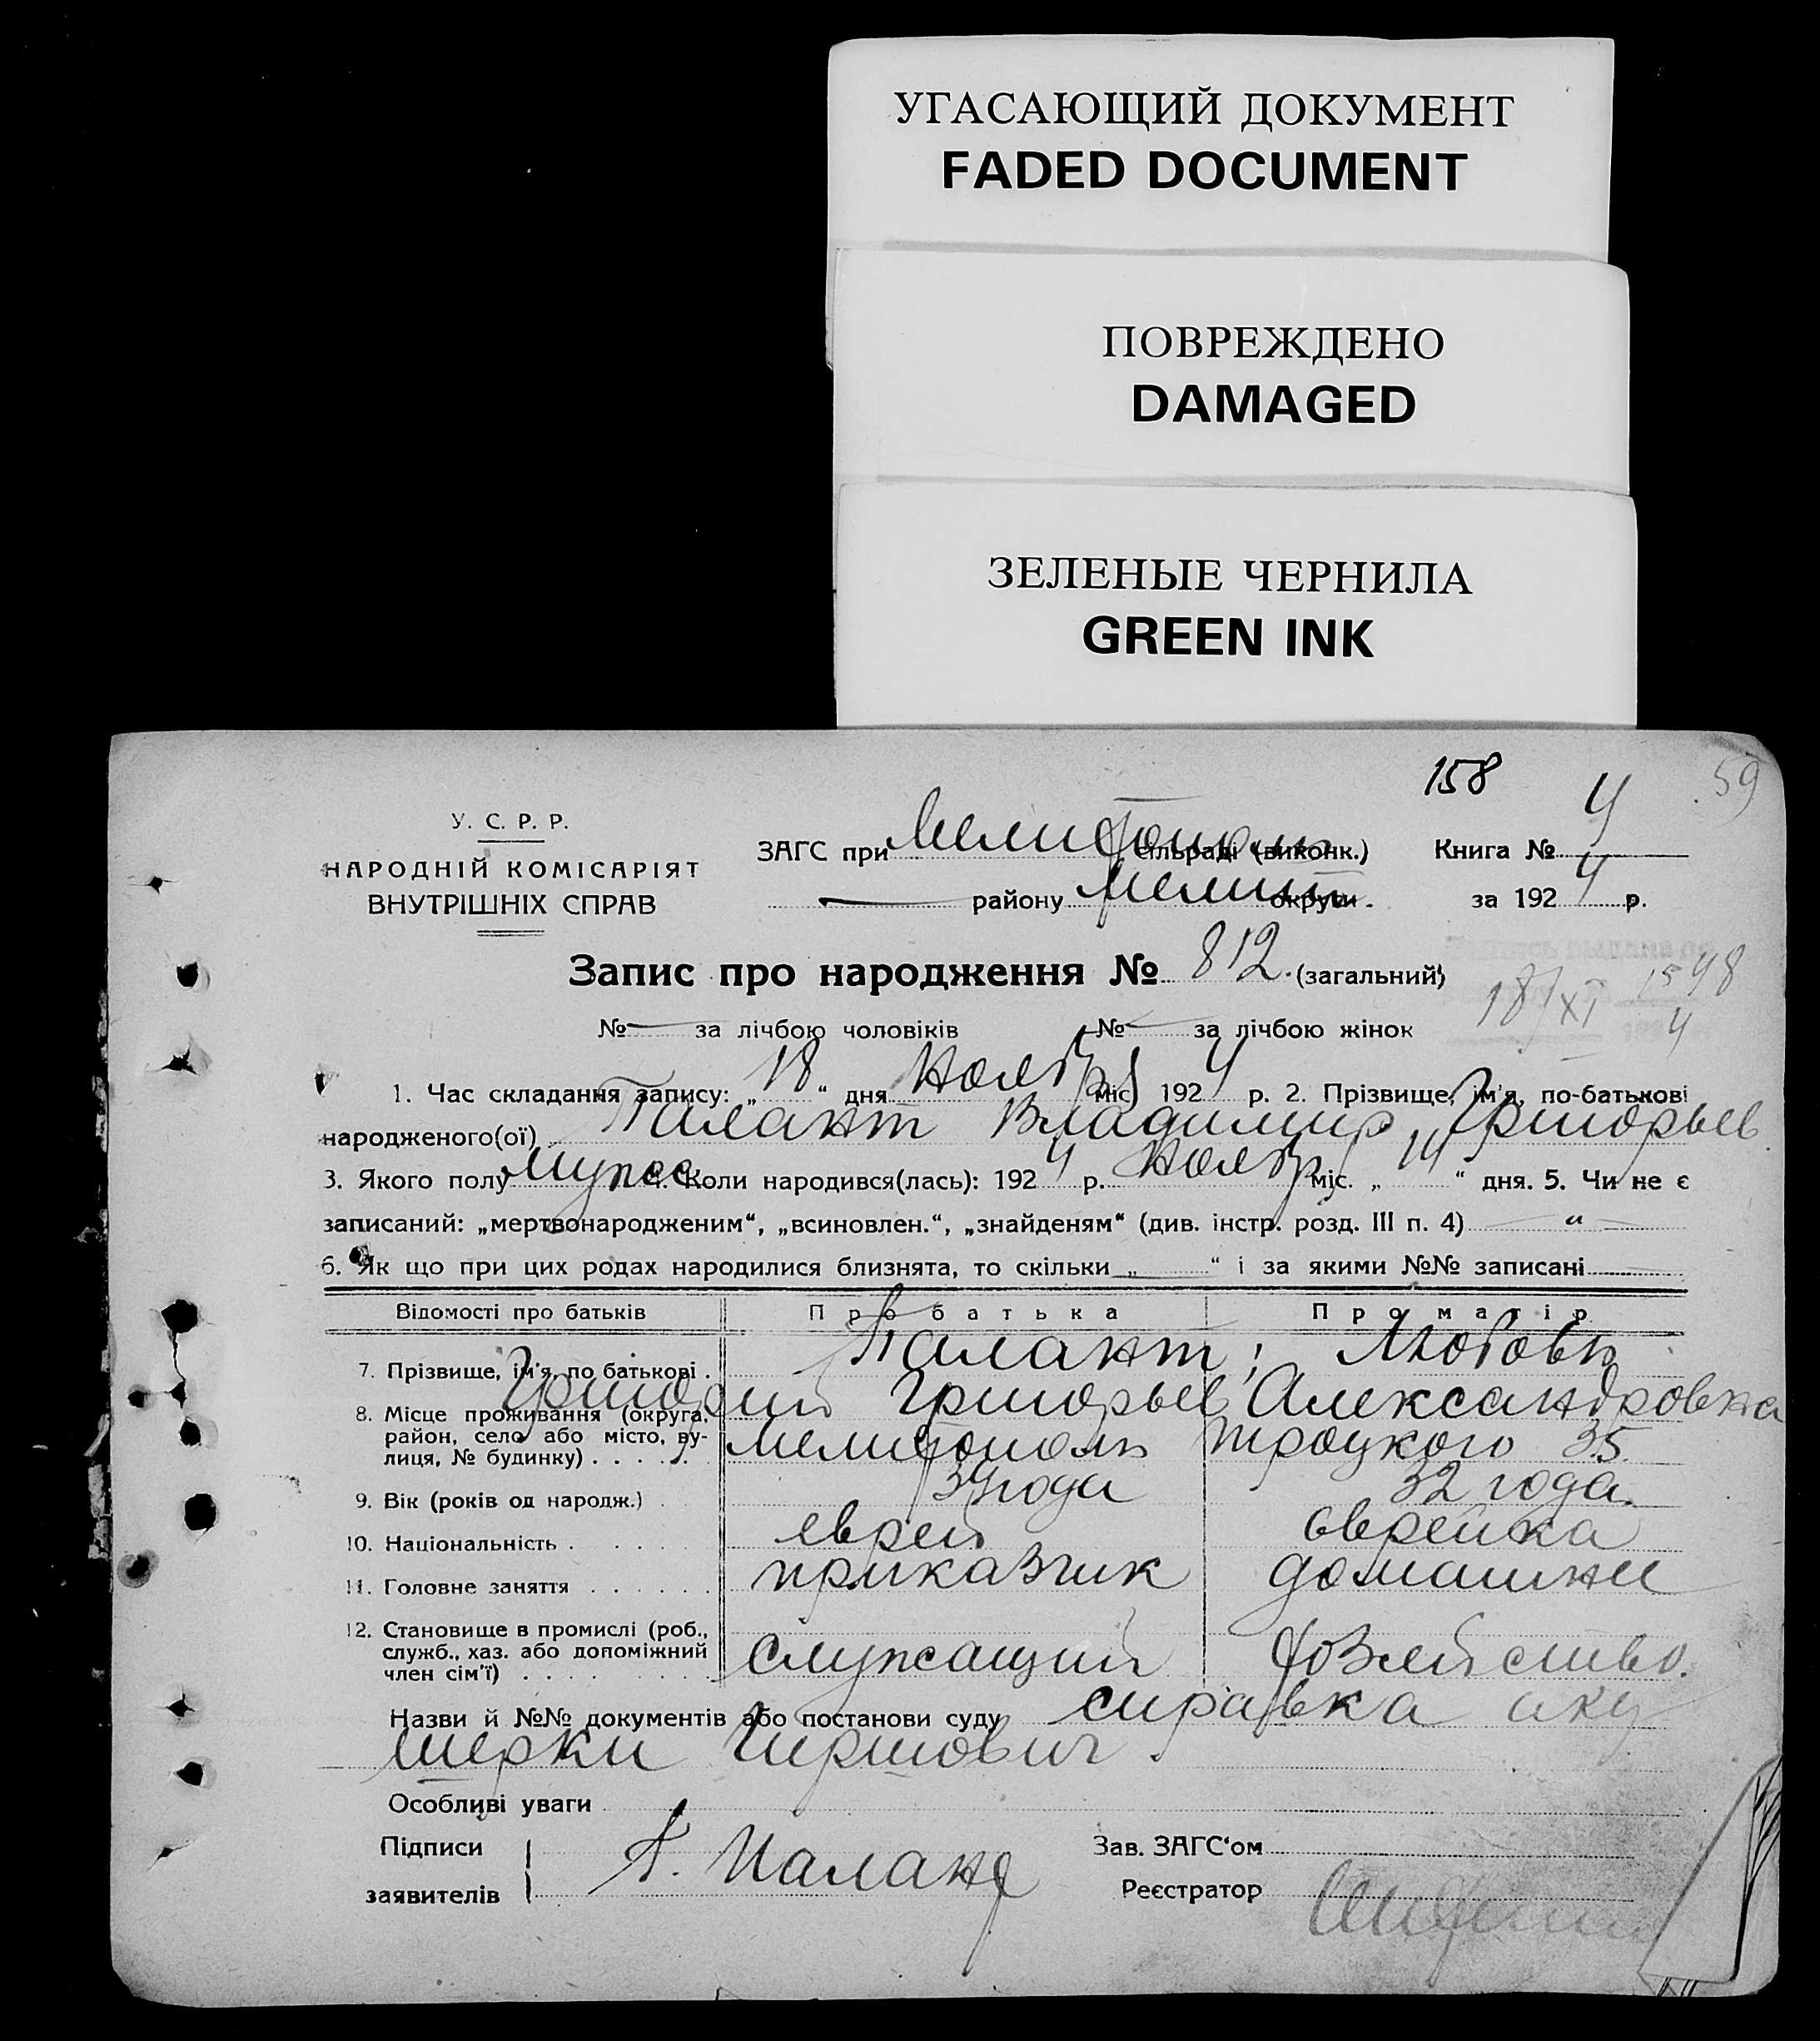 УГАСАЮЩИЙ ДОКУМЕНТ
FADED DOCUMENT
ПОВРЕЖДЕНО
DAMAGED
ЗЕЛЕНЫЕ ЧЕРНИЛА
GREEN INK
158
59
У. С. Р. Р.
НАРОДНІЙ КОМІСАРІЯТ
ВНУТРІШНІХ СПРАВ
ЗАГС при Мелитополь сільраді (виконк.) Книга № 4
району Мелит округи. за 1924 р.
Запис про народження № 812. (загальний)
18/XI 1548
4
№ за лічбою чоловіків № за лічбою жінок
1. Час складання запису: „18“ дня Ноябр міс. 1924 р. 2. Прізвище, ім'я, по-батькові
народженого(ої) Талант Владимир Григорьев
3. Якого полу мужес 4. Коли народився(лась): 1924 р. Ноябр міс. „ “ дня. 5. Чи не є
записаний: „мертвонародженим“, „всиновлен.“, „знайденям“ (див. інстр. розд. III п. 4) "
6. Як що при цих родах народилися близнята, то скільки „ “ і за якими №№ записані
Відомості про батьків Про батька Про матір
7. Прізвище, ім'я, по батькові . Талант Любовь
Григорий Григорьев Александровна
8. Місце проживання (округа, район, село або місто, вулиця, № будинку) . . . . . Мелитополь Троцкого 35.
9. Вік (років од народж.) . 34 года 32 года.
10. Національність . . . . . еврей еврейка
11. Головне заняття . . . . . . приказчик домашнее
12. Становище в промислі (роб.,
служб., хаз. або допоміжний
член сім'ї) . . . . . . . служащий хозяйство.
Назви й №№ документів або постанови суду справка аку
шерки Гиршович
Особливі уваги
Підписи
заявителів
Зав. ЗАГС'ом
Реєстратор